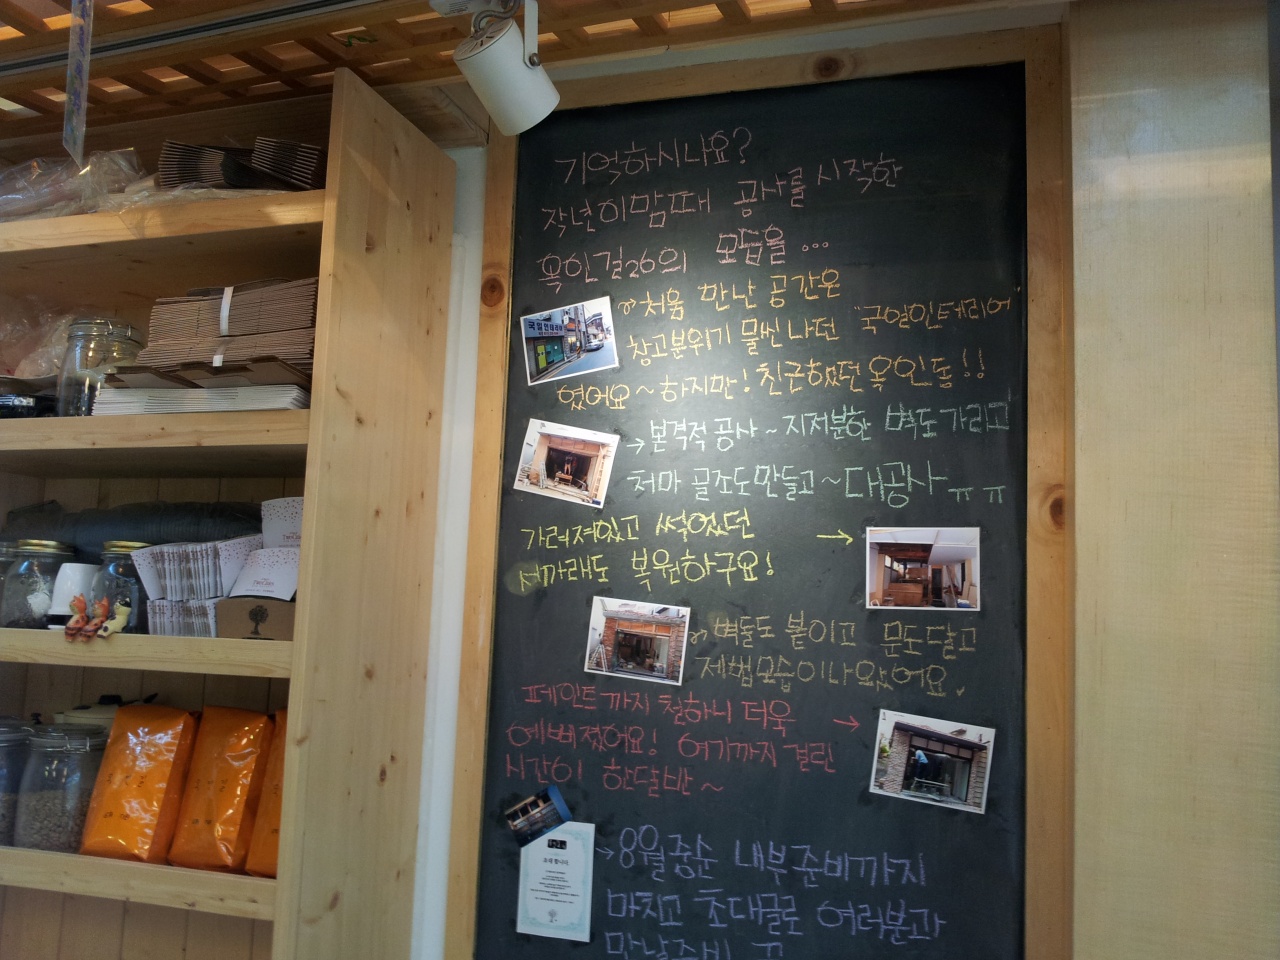 기억하시나요?
작년이맘때 공사를 시작한
옥인길26의 모습을...
처음 만난 공간은
창고분위기 물씬나던 "국일인테리어
였어요~ 하지만! 친근했던 옥인동!!
→ 본격적 공사~ 지저분한 벽도 가리고
처마 골조도만들고~ 대공사ㅠㅠ
가려져있고 썩었던 →
서까래도 복원하구요!
벽돌도 붙이고 문도달고
제법모습이나오네요.
페인트까지 칠하니 더욱 →
예뻐졌어요! 여기까지 걸린
시간이 한달반~
초대합니다
→8월중순 내부준비까지
마치고 초대글로 여러분과
만날준비 끝